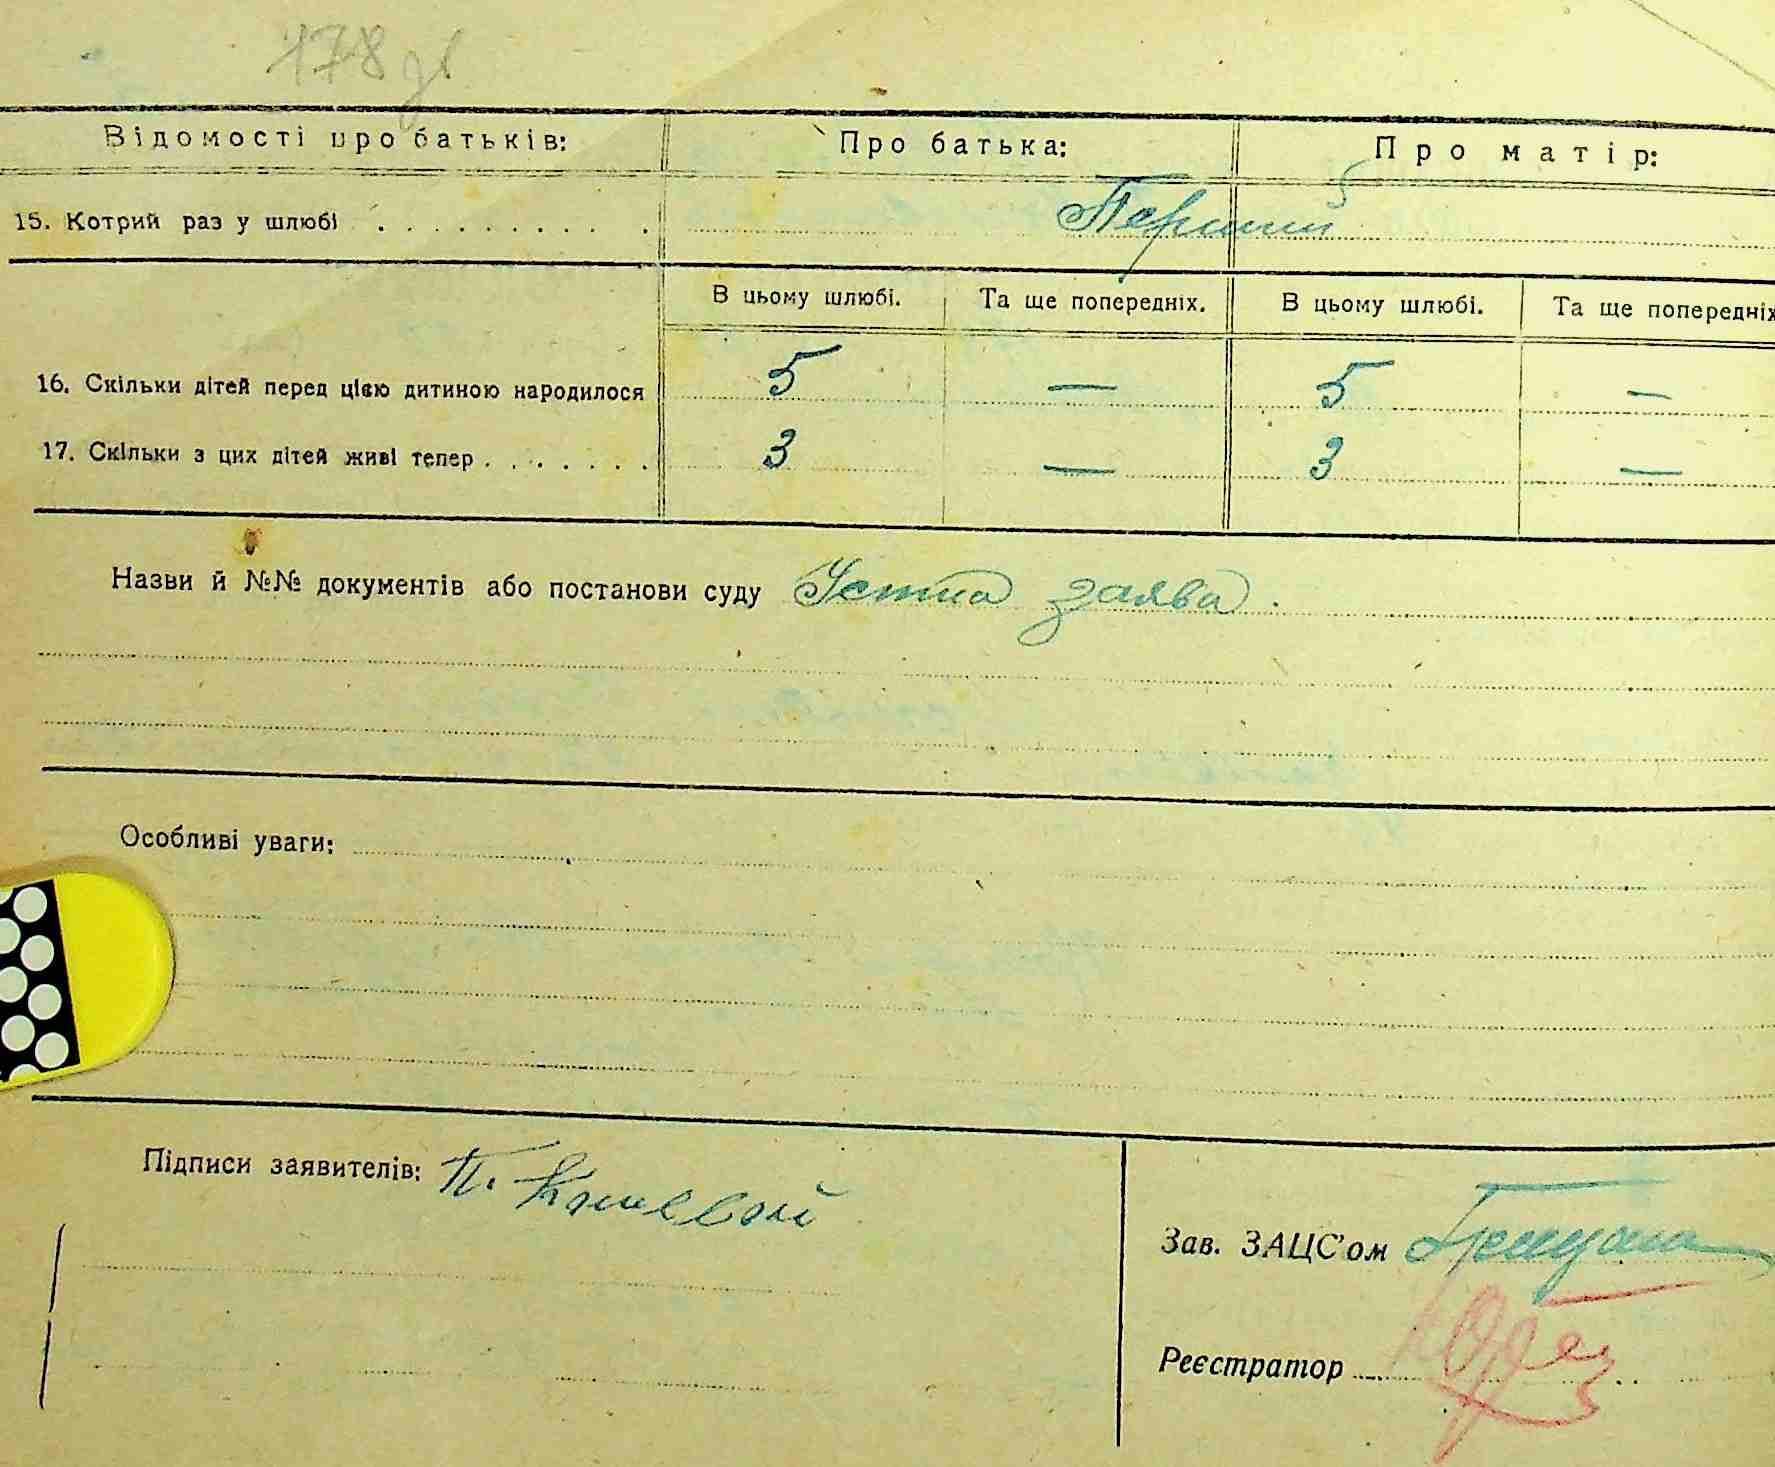 178 зв
Відомості про батьків: Про батька: Про матір:
15. Котрий раз у шлюбі . . . . . . . . . . Перший
В цьому шлюбі. Та ще попередніх. В цьому шлюбі. Та ще попередніх
16. Скільки дітей перед цією дитиною народилося 5 — 5 —
17. Скільки з цих дітей живі тепер . . . . . . . 3 — 3 —
Назви й №№ документів або постанови суду Устна заява.
Особливі уваги:
Підписи заявителів: П. Кошевой
Зав. ЗАЦС'ом
Реєстратор